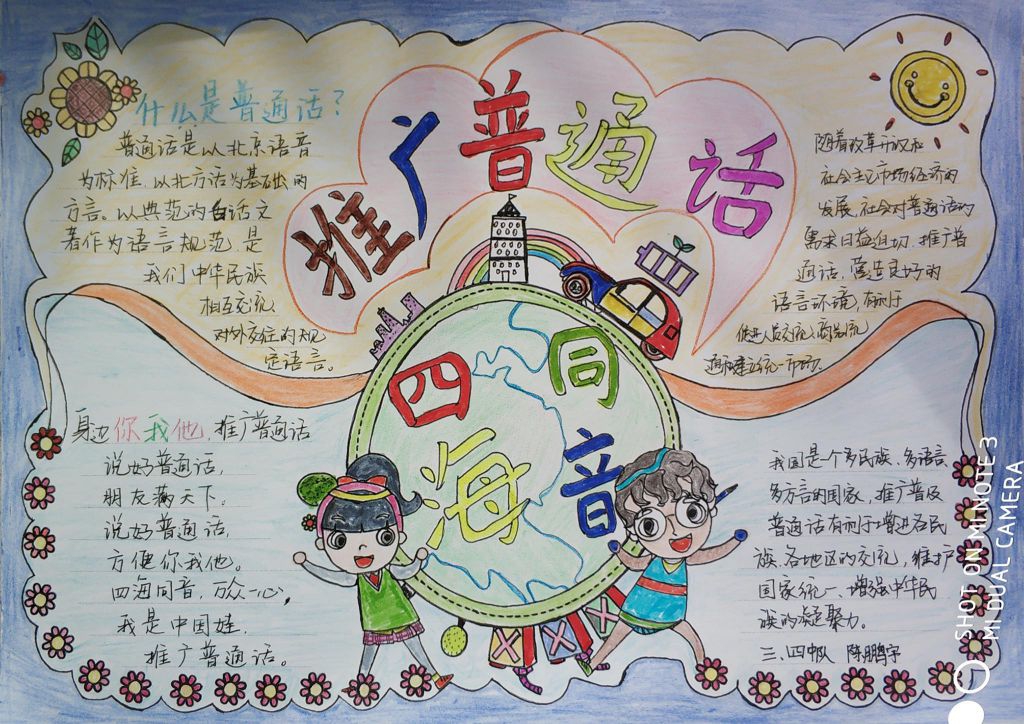 推广普通话
什么是普通话?
普通话是以北京语音
为标准,以北方话为基础的
方言。以典范的白话文
著作为语言规范,是
我们中华民族
相互交流、
对外交往的规
定语言。
随着改革开放和
社会主义市场经济的
发展,社会对普通话的
需求日益迫切,推广普
通话,营造良好的
语言环境,有利于
促进人员交流,商品流
通和建立统一市场。
四海
同音
身边你我他,推广普通话
说好普通话,
朋友满天下。
说好普通话,
方便你我他。
四海同音,万众一心,
我是中国娃,
推广普通话。
我国是个多民族、多语言、
多方言的国家,推广普及
普通话有利于增进各民
族、各地区的交流,维护
国家统一,增强中华民
族的凝聚力。
三、四中队 陈鹏宇
SHOT ON MI NOTE 3
MI DUAL CAMERA